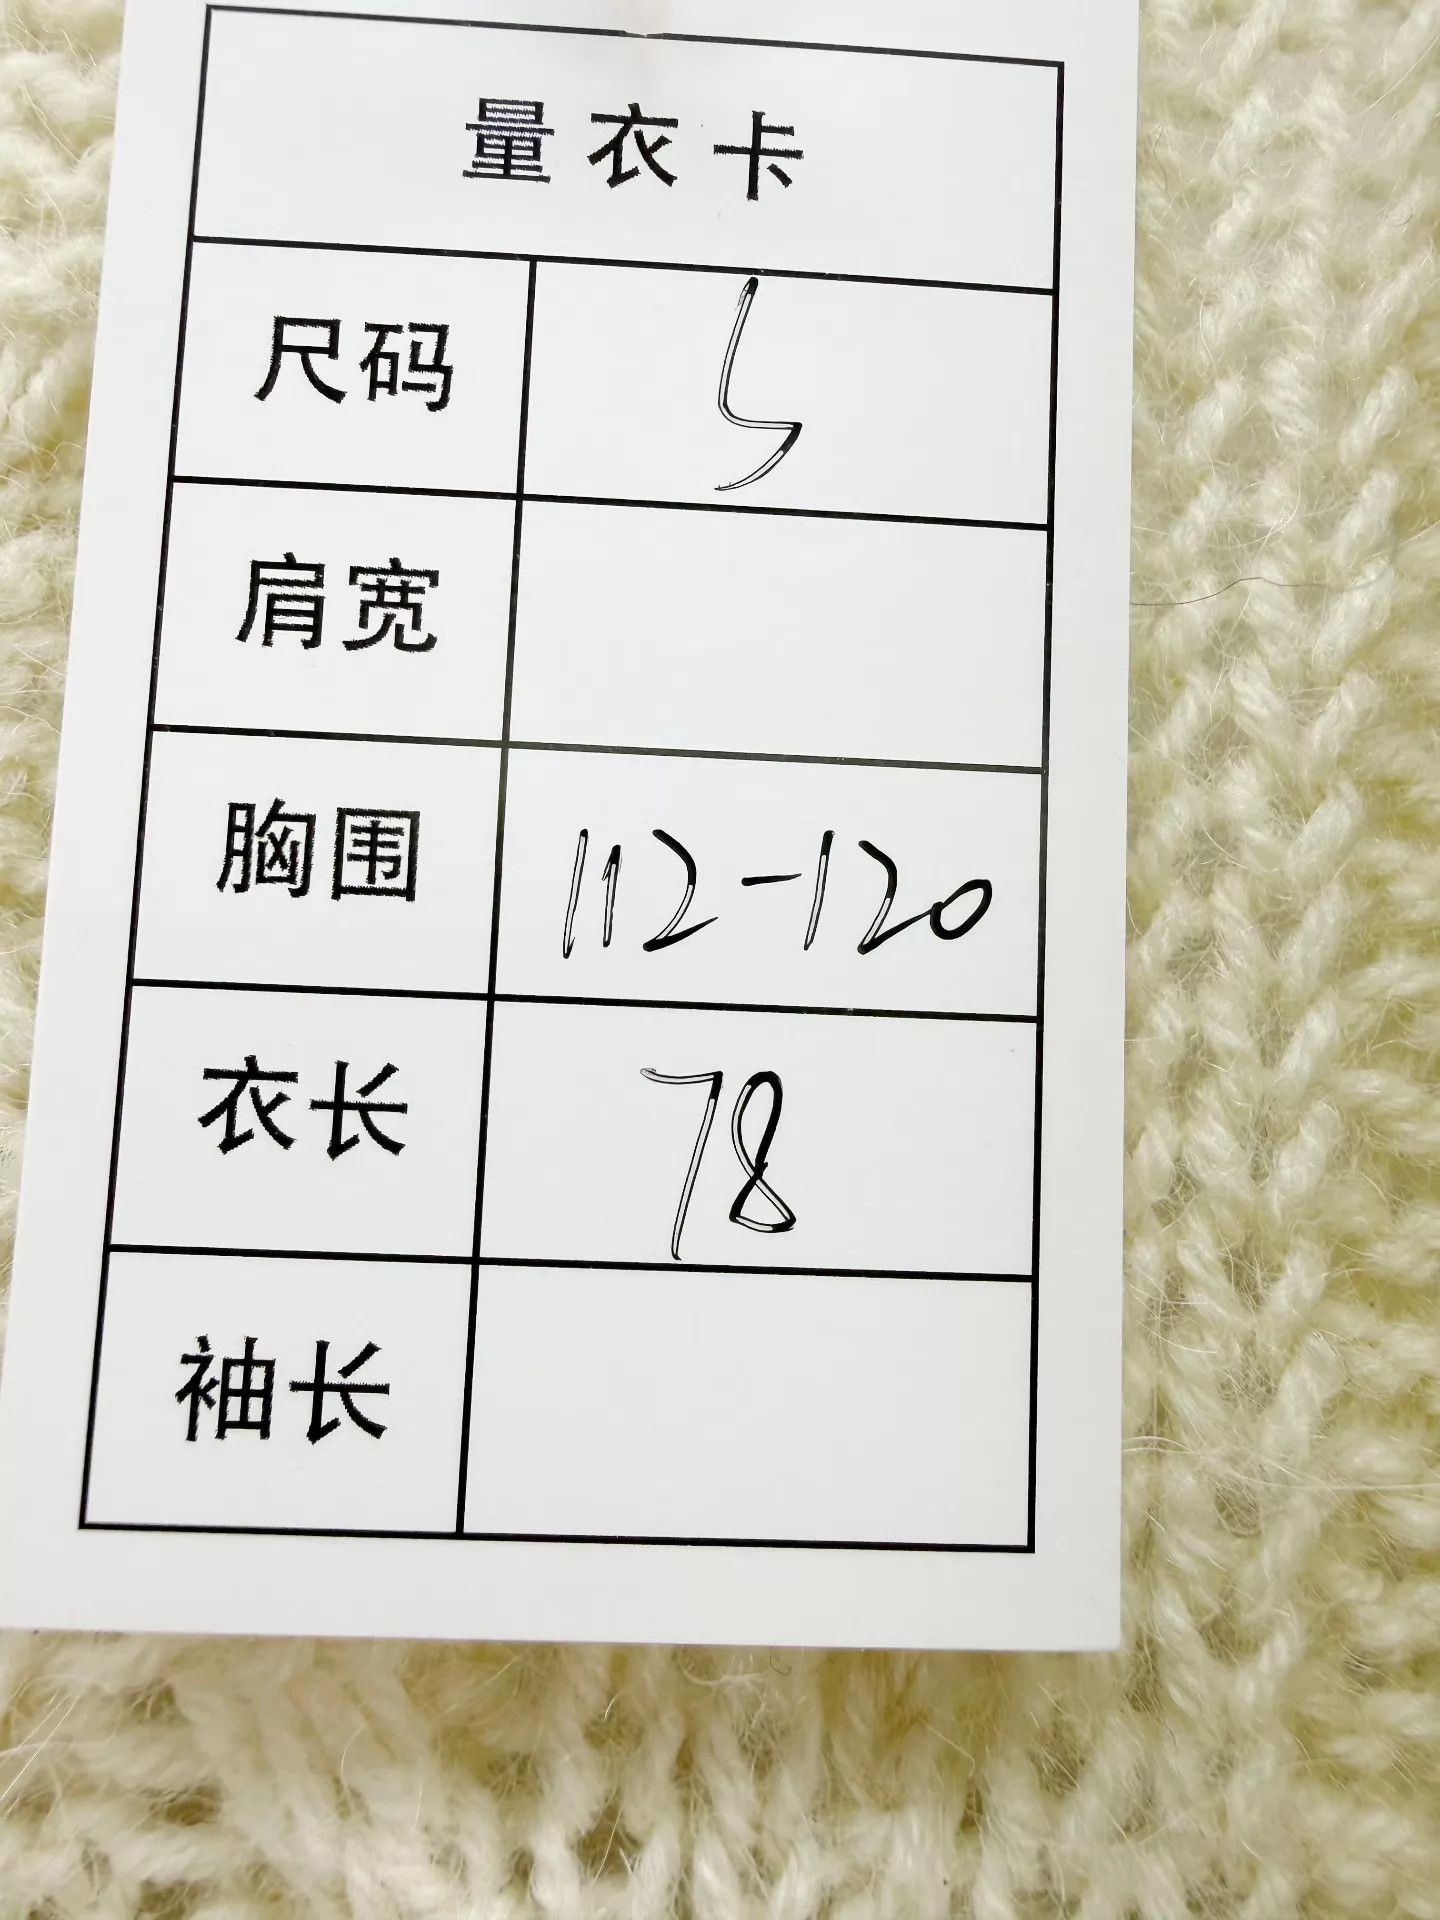 量衣卡
尺码 S
肩宽
胸围 112-120
衣长 78
袖长